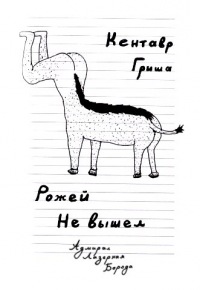 Кентавр
Гриша
Рожей
Не вышел
Адмирал
Лазерная
Борода